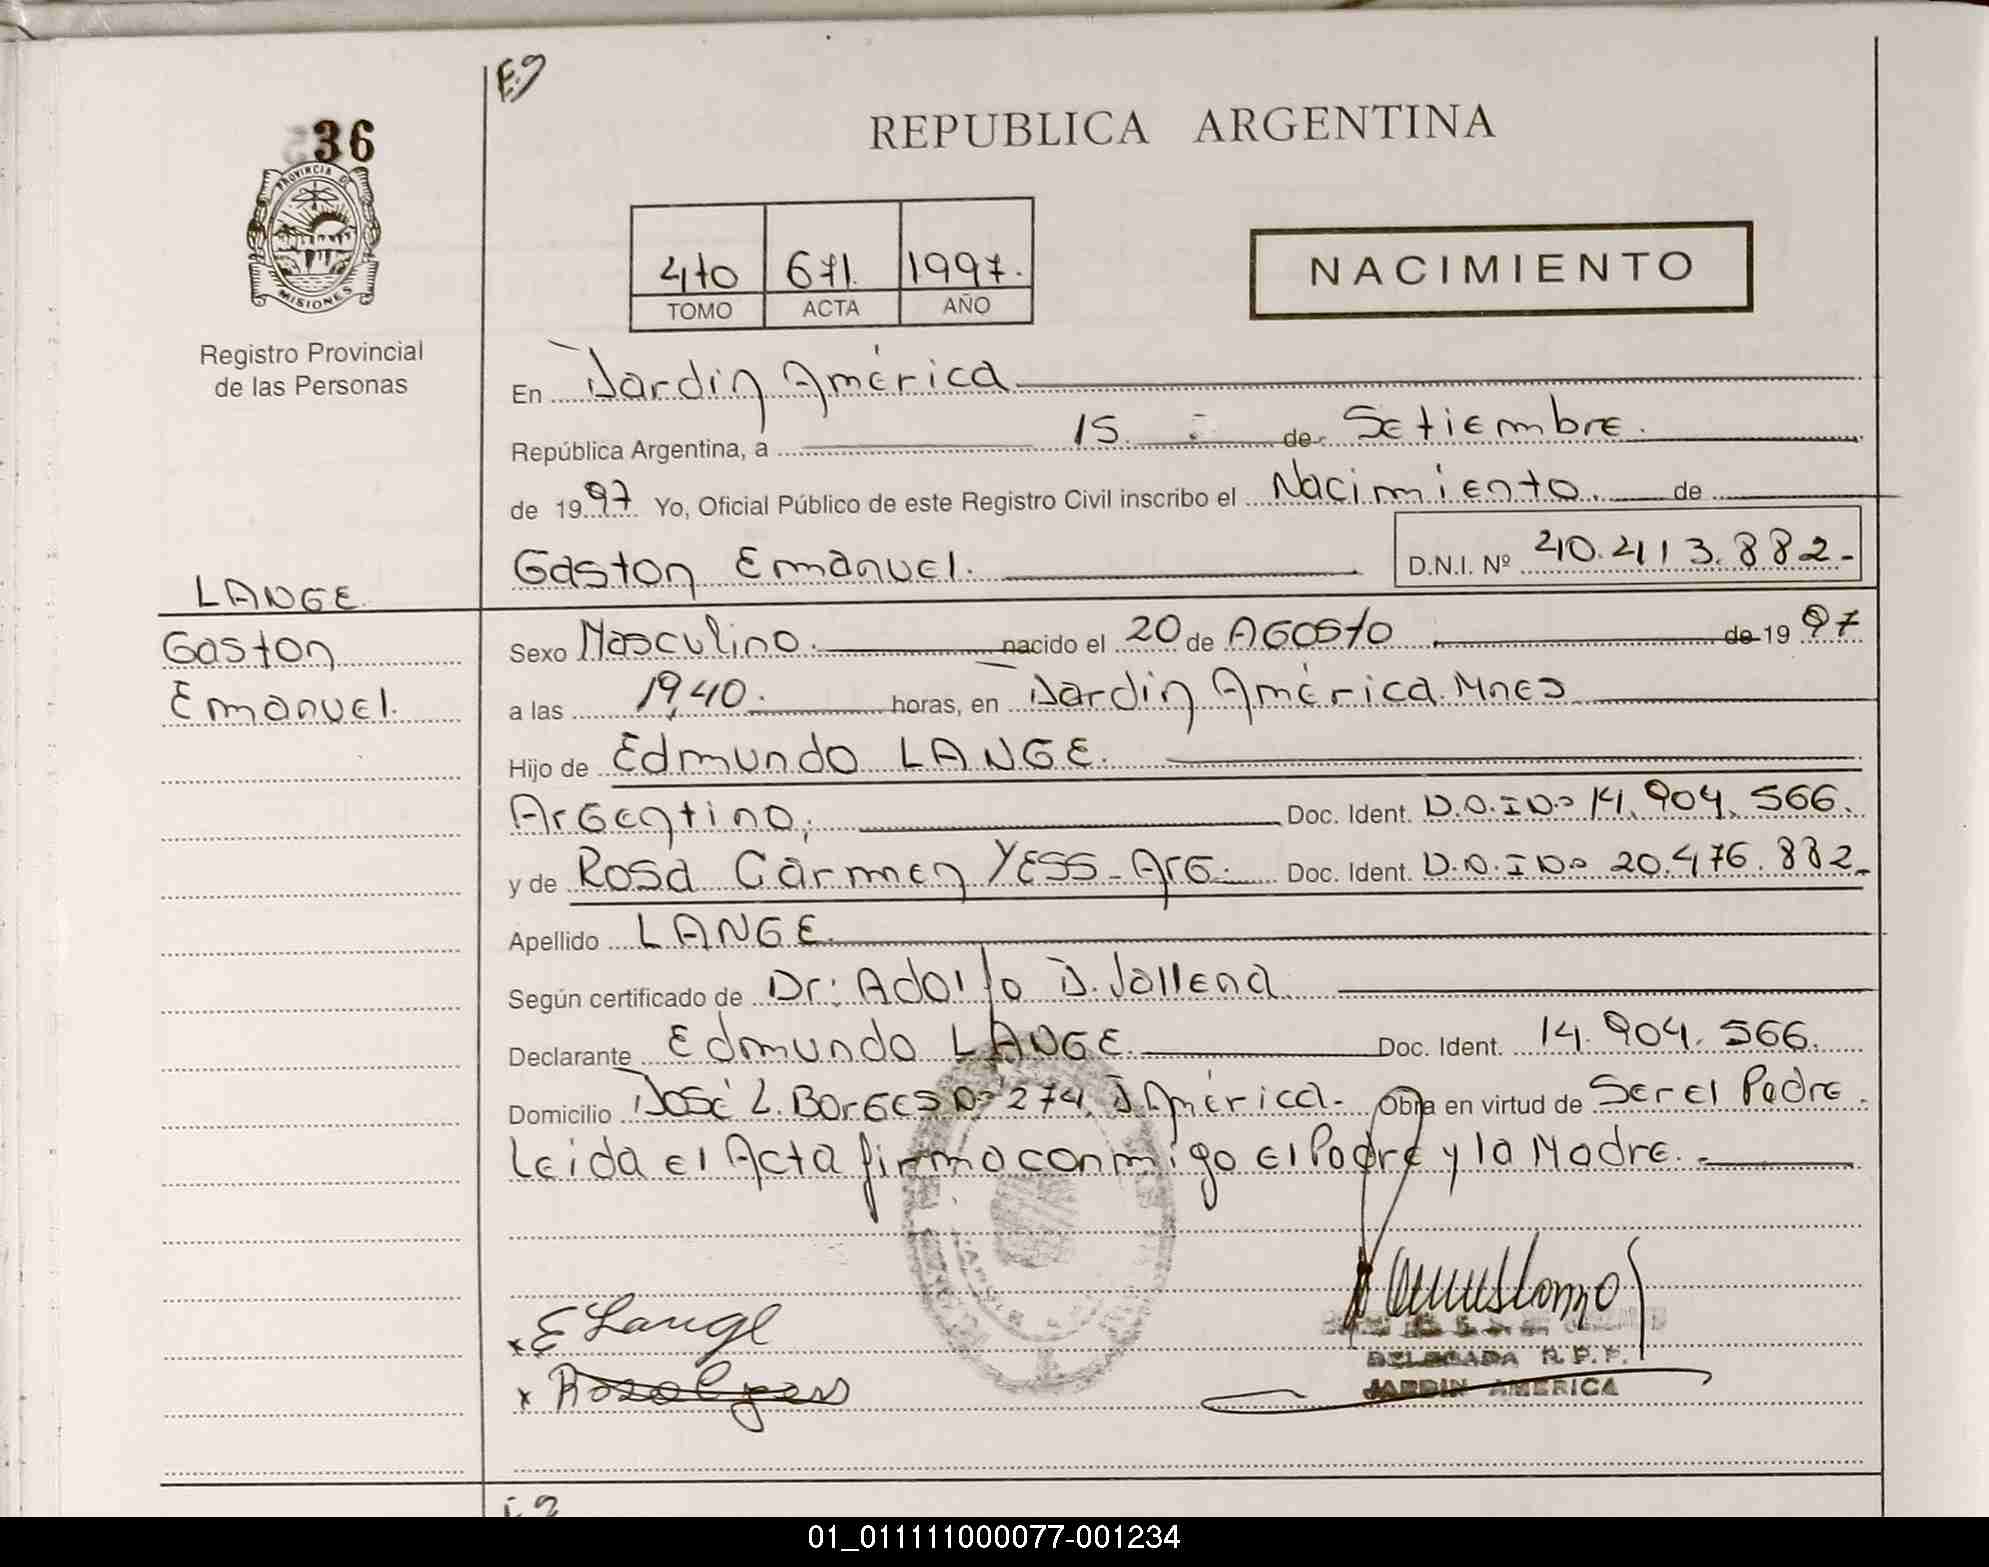 E.9
36
PROVINCIA DE
MISIONES
Registro Provincial
de las Personas
REPUBLICA ARGENTINA
4to 671. 1997.
TOMO ACTA AÑO
NACIMIENTO
En Jardin América
República Argentina, a 15 de Setiembre.
de 1997 Yo, Oficial Público de este Registro Civil inscribo el Nacimiento. de
Gaston Emanuel. D.N.I. Nº 40.413.882-
LANGE
Gaston
Emanuel.
Sexo Masculino. nacido el 20 de AGosto de 1997
a las 19,40. horas, en Jardin América. Mnes
Hijo de Edmundo LANGE.
Argentino, Doc. Ident. D.N.I Nº 14.904.566.
y de Rosa Carmen YESS-Arg. Doc. Ident. D.N.I Nº 20.476.882-
Apellido LANGE.
Según certificado de Dr: Adolfo D. Jollena
Declarante Edmundo LANGE. Doc. Ident. 14.904.566.
Domicilio José L. Borges Nº 274, J América. Obra en virtud de Ser el Padre.
Leida el Acta firmo conmigo el Padre y la Madre.
E Lange
DELEGADA R.P.P.
JARDIN AMERICA
01_011111000077-001234